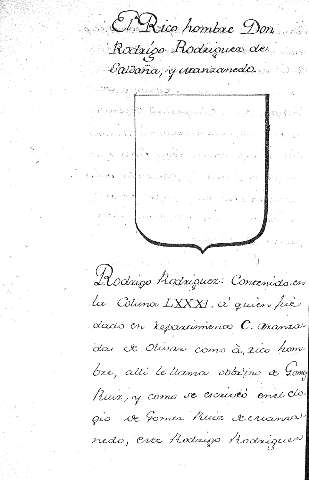 El Rico hombre Don
Rodrigo Rodriguez de
Saldaña, y manzanedo.
Rodrigo Rodriguez: Contenido en
la Coluna LXXXI. á quien fué
dado en repartimento C. aranza
das de Olivar como á, rico hom
bre, alli le llama sobrino de Gomez
Ruiz, y como se escrivió en el elo
gio de Gomez Ruiz de manza
nedo, este Rodrigo Rodriguez